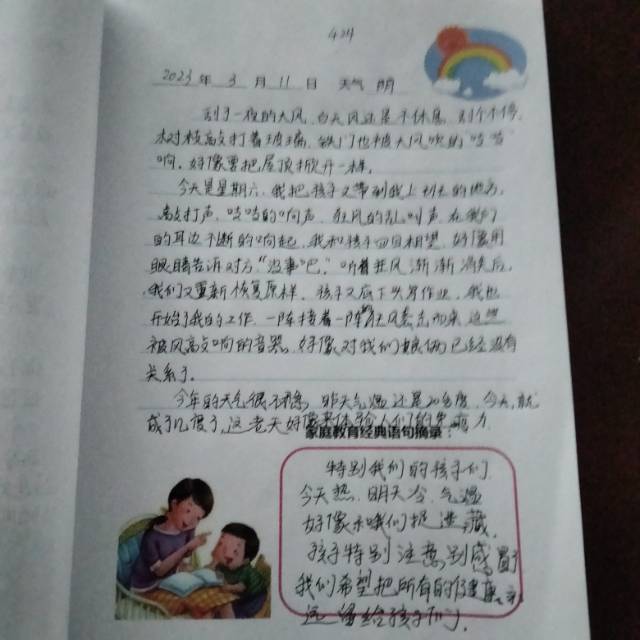 424
2023年3月11日 天气 晴
刮了一夜的大风,白天风还是不休息,刮个不停,
树枝敲打着玻璃,铁门也被大风吹的"哐哐"
响,好像要把屋顶掀开一样。
今天是星期六,我把孩子又带到我上班的地方,
敲打声,哐哐的响声,狂风的乱叫声,在我们
的耳边不断的响起,我和孩子四目相望,好像用
眼睛告诉对方:"没事吧。"听着狂风渐渐消失后,
我们又重新恢复原样,孩子又底下头写作业,我也
开始了我的工作,一阵接着一阵的狂风袭击而来,这些
被风敲响的音器,好像对我们娘俩已经没有
关系了。
今年的天气很不稳,昨天气温还是20多度,今天,就
成了几度了,这老天好像来体验人们的免疫力
家庭教育经典语句摘录:
特别我们的孩子们
今天热,明天冷,气温
好像永哦们捉迷藏,
孩子特别注意别感冒了
我们希望把所有的健康和
运留给孩子们了。